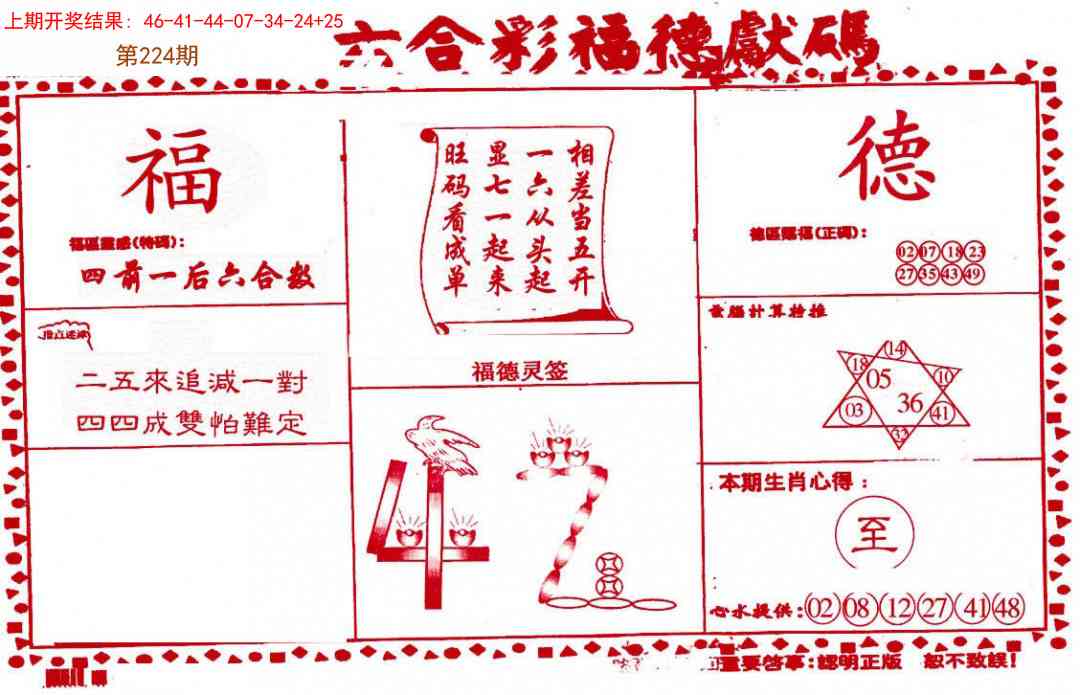 上期开奖结果：46-41-44-07-34-24+25
第224期
六合彩福德獻碼
福
福區靈感(特碼)：
四前一后六合数
二五來追減一對
四四成雙怕難定
相差当五开
一六从头起
显七一起来
旺码看成单
福德灵签
德
德區賜福(正碼)：
02 07 18 23
27 35 43 49
電腦計算特推
14
18 10
05
36
03 41
33
本期生肖心得：
至
心水提供：02 08 12 27 41 48
重要啓事：認明正版 恕不致誤！